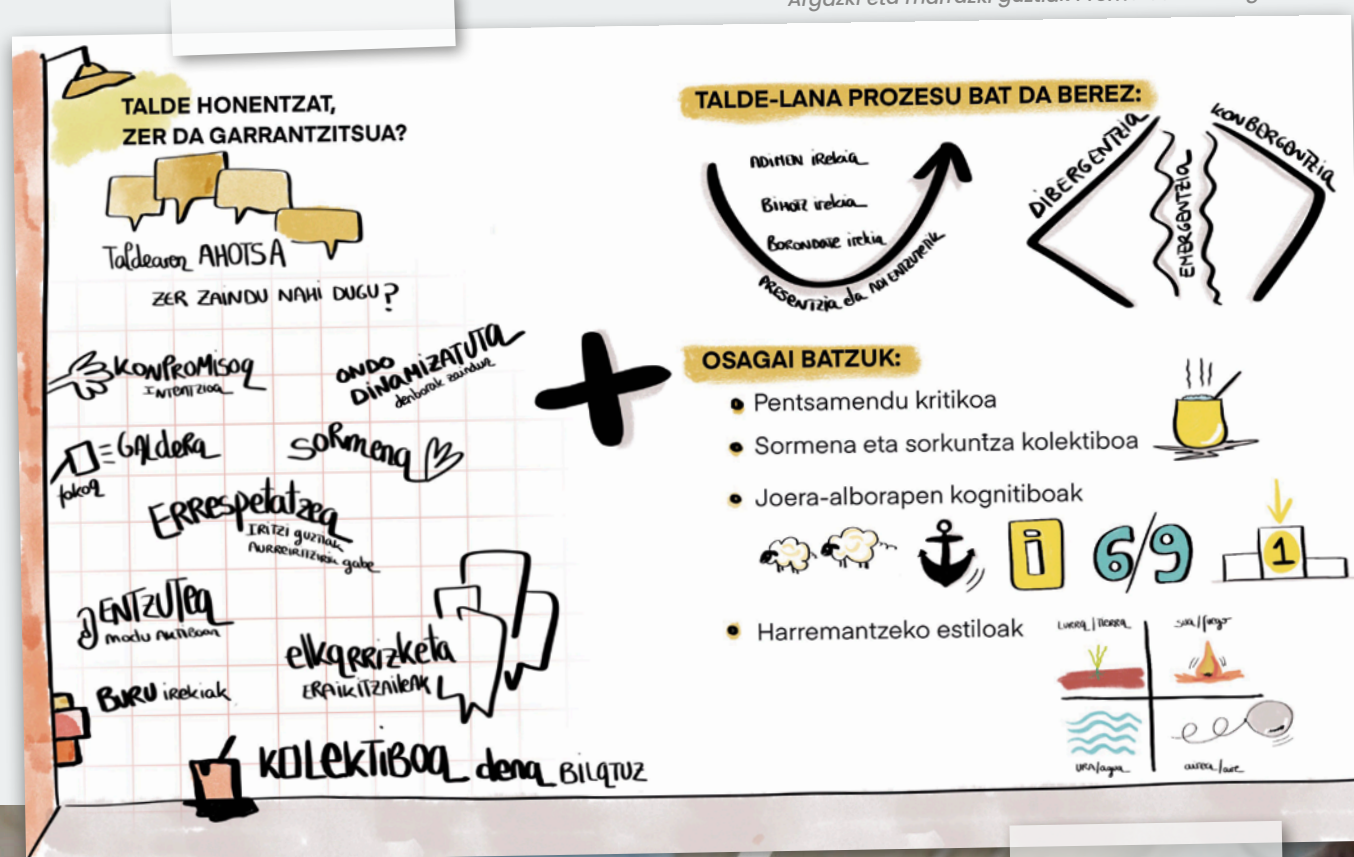 Argazki eta marrazki guztiak
TALDE HONENTZAT,
ZER DA GARRANTZITSUA?
Taldearen AHOTSA
ZER ZAINDU NAHI DUGU?
KONPROMISOA
INTENTZIOA
ONDO
DINAMIZATUTA
denborak zainduz
GALDERA
fokoa
SORMENA
ERRESPETATZEA
IRITZI guztiak
AURREIRITZIRIK gabe
ENTZUTEA
modu AKTIBOAN
elkarrizketa
ERAIKITZAILEAK
BURU irekiak
KOLEKTIBOA dena BILATUZ
TALDE-LANA PROZESU BAT DA BEREZ:
ADIMEN iRekia
BiHOTZ irekia
BORONDATE irekia
PRESENTZIA eta ADI ENTZUNETIK
DIBERGENTZIA
EMERGENTZIA
KONBERGENTZIA
OSAGAI BATZUK:
Pentsamendu kritikoa
Sormena eta sorkuntza kolektiboa
Joera-alborapen kognitiboak
i
6/9
1
Harremantzeko estiloak
LURRA/TIERRA
sua/fuego
URA/agua
airea/aire